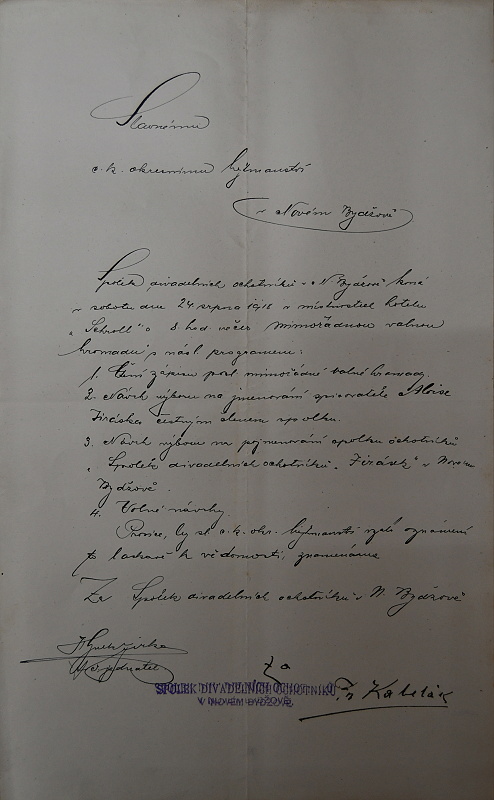 Slavnému
c. k. okresnímu hejtmanství
v Novém Bydžově
Spolek divadelních ochotníků v N. Bydžově koná
v sobotu dne 24. srpna 1918 v místnostech hotelu
„Schroll" o 8 hod. večer mimořádnou valnou
hromadu s násl. programem:
1. Čtení zápisu posl. mimořádné valné hromady.
2. Návrh výboru na jmenování spisovatele Aloise
Jiráska čestným členem spolku.
3. Návrh výboru na pojmenování spolku ochotníků
„Spolek divadelních ochotníků „Jirásek" v Novém
Bydžově.
4. Volné návrhy.
Prosíce, by sl. c. k. okr. hejtmanství vzalo oznámení
to laskavě k vědomosti, znamenáme
Za Spolek divadelních ochotníků v N. Bydžově
jednatel
za
Fr Kabelák
SPOLEK DIVADELNÍCH OCHOTNÍKŮ
V NOVÉM BYDŽOVĚ.